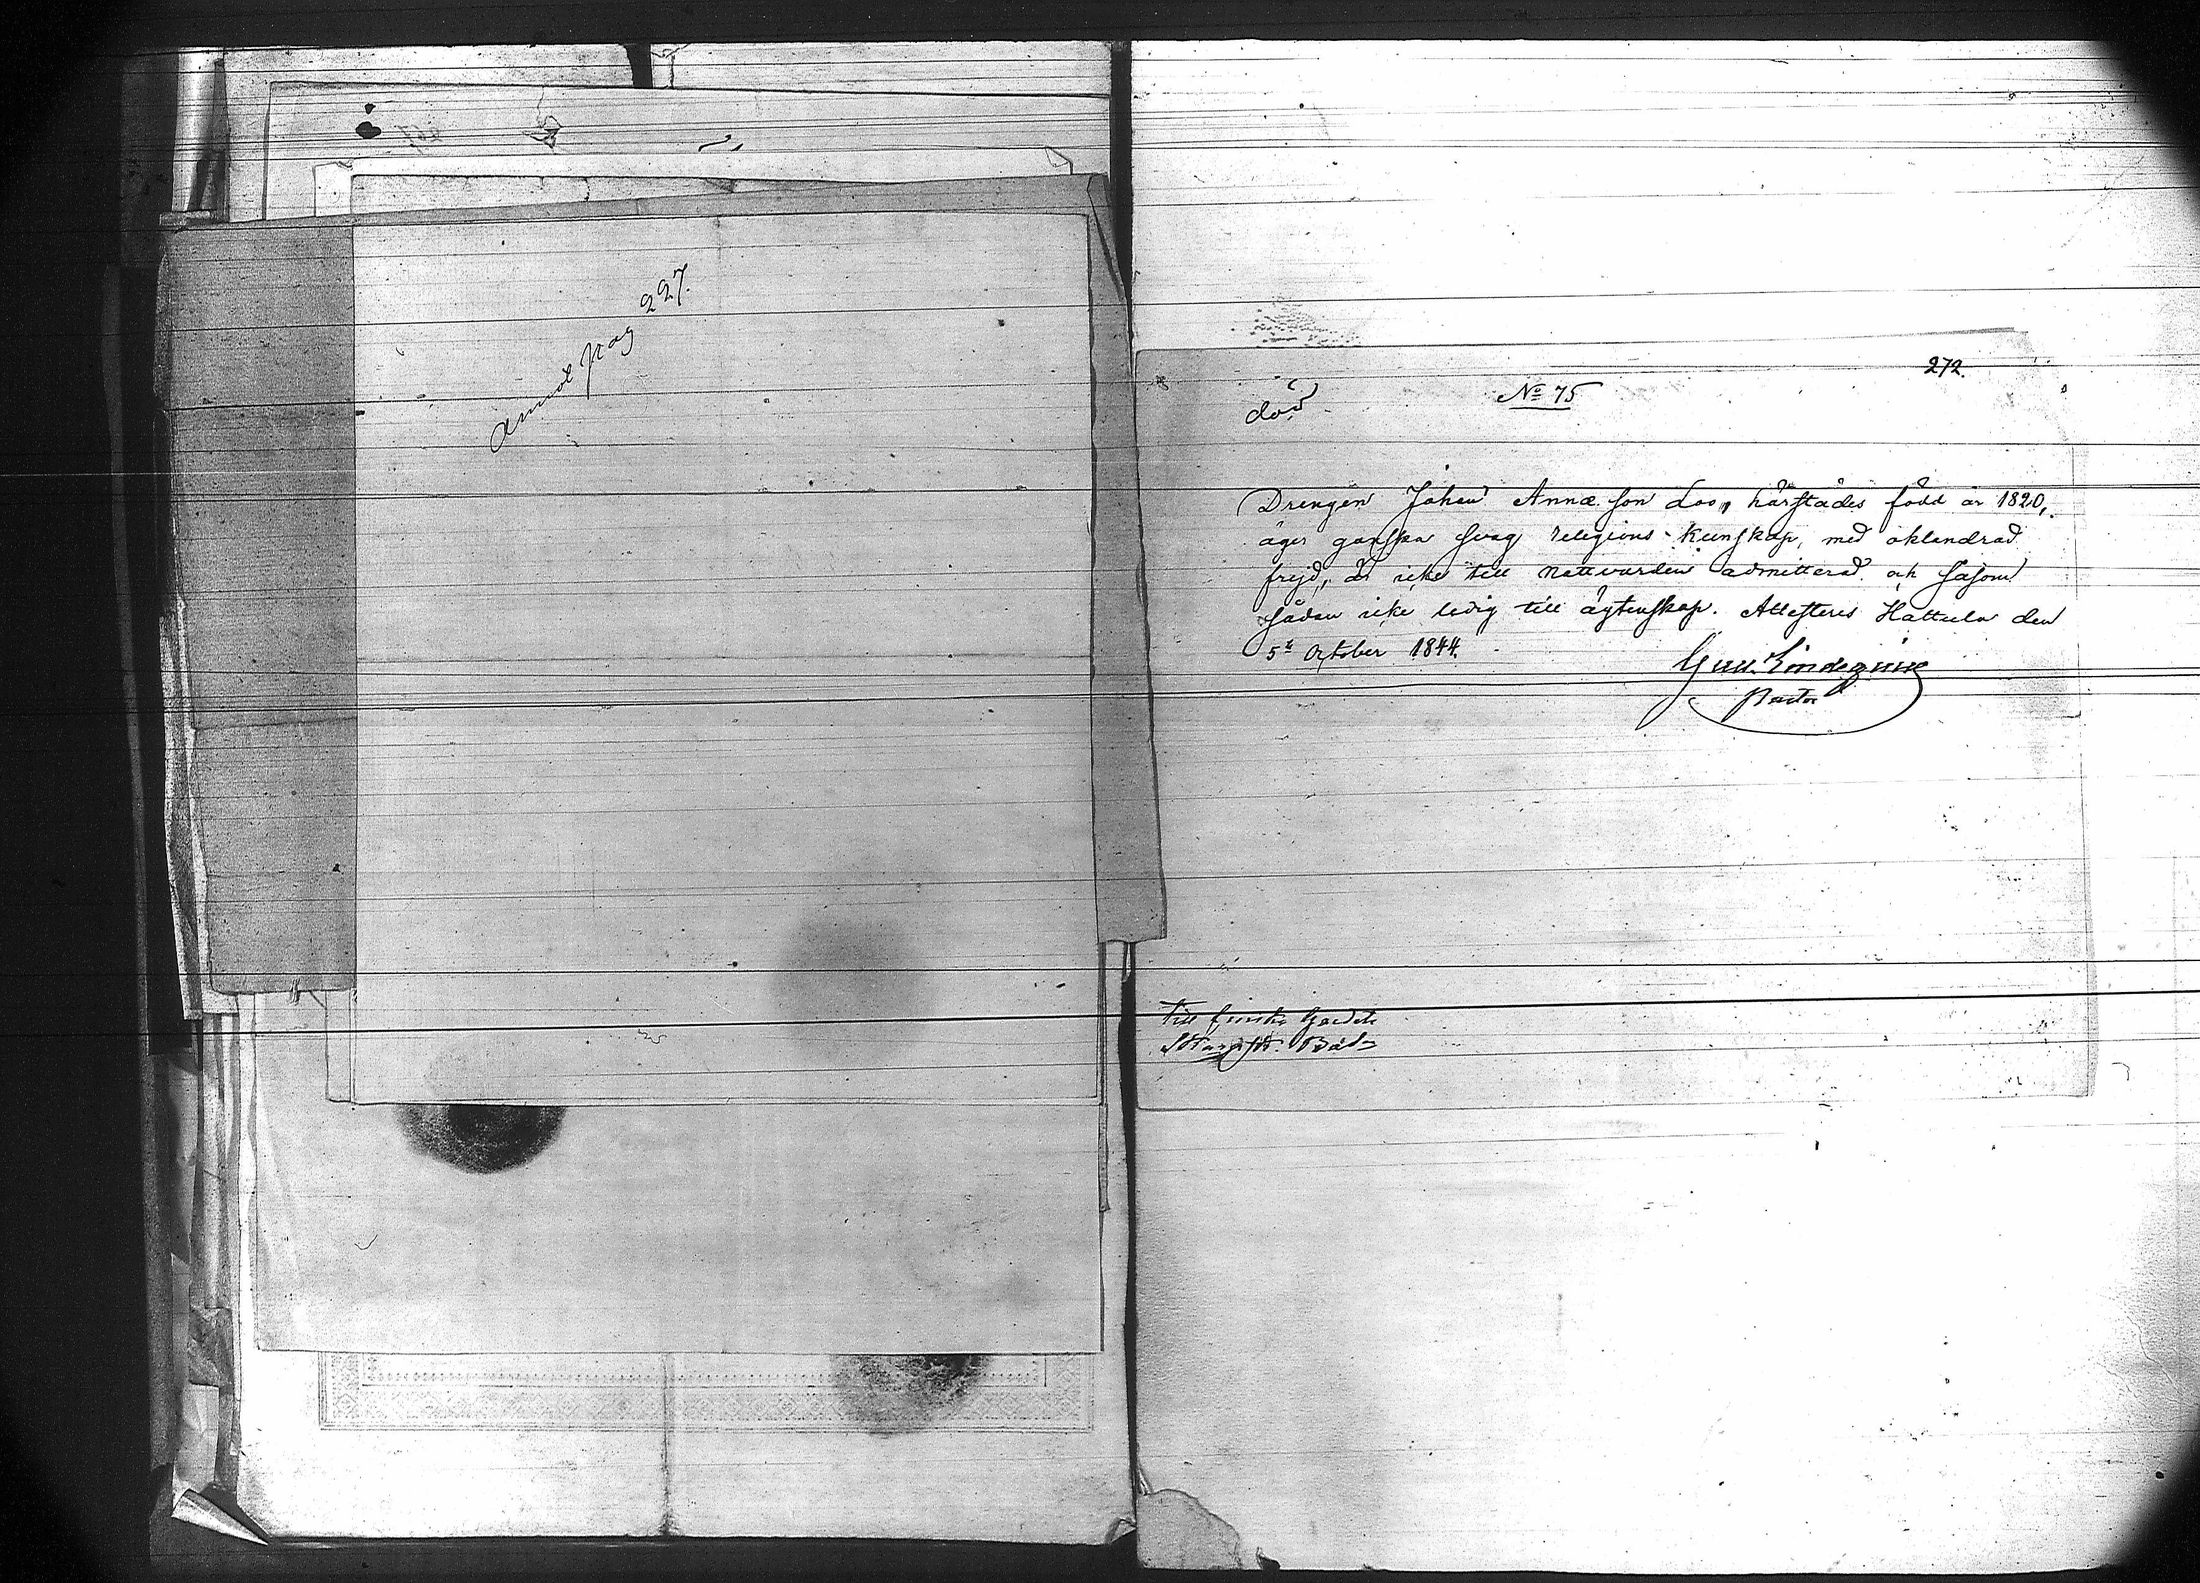 annot pag 227.
272.
död
No 75
Drengen Johan Annæ son Loo, härstädes född år 1820,
äger ganska svag religions-kunskap, med oklandrad
frejd, är icke till nattvarden admitterad och såsom
sådan icke ledig till ägtenskap. Attesteras Hattula den
5te October 1844.
Pastor
Till Finska Gardets